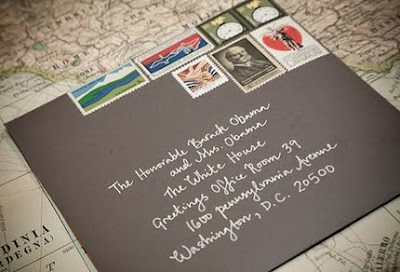 The Honorable Barack Obama
and Mrs. Obama
The White House
Greetings Office Room 39
1600 pennsylvania Avenue
Washington, D.C. 20500
DINIA
DEGNA)